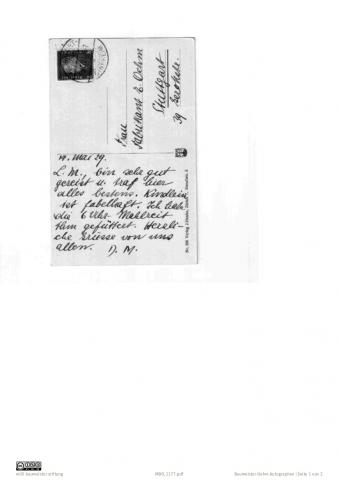 Frau
Fabrikant E. Oehme
Stuttgart
39 Seestr.
19. Mai 29.
L. M., bin sehr gut
gereist u. traf hier
alles bestens. Kindlein
ist fabelhaft. Ich habe
die 6 Uhr Mahlzeit
ihm gefüttert. Herzli-
che Grüsse von uns
allen. D. M.
willi baumeister stiftung
Baumeister-Oehme Autographen | Seite 1 von 2